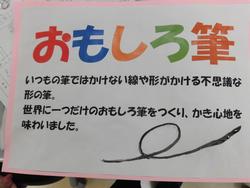 おもしろ筆
いつもの筆ではかけない線や形がかける不思議な
形の筆。
世界に一つだけのおもしろ筆をつくり、かき心地を
味わいました。